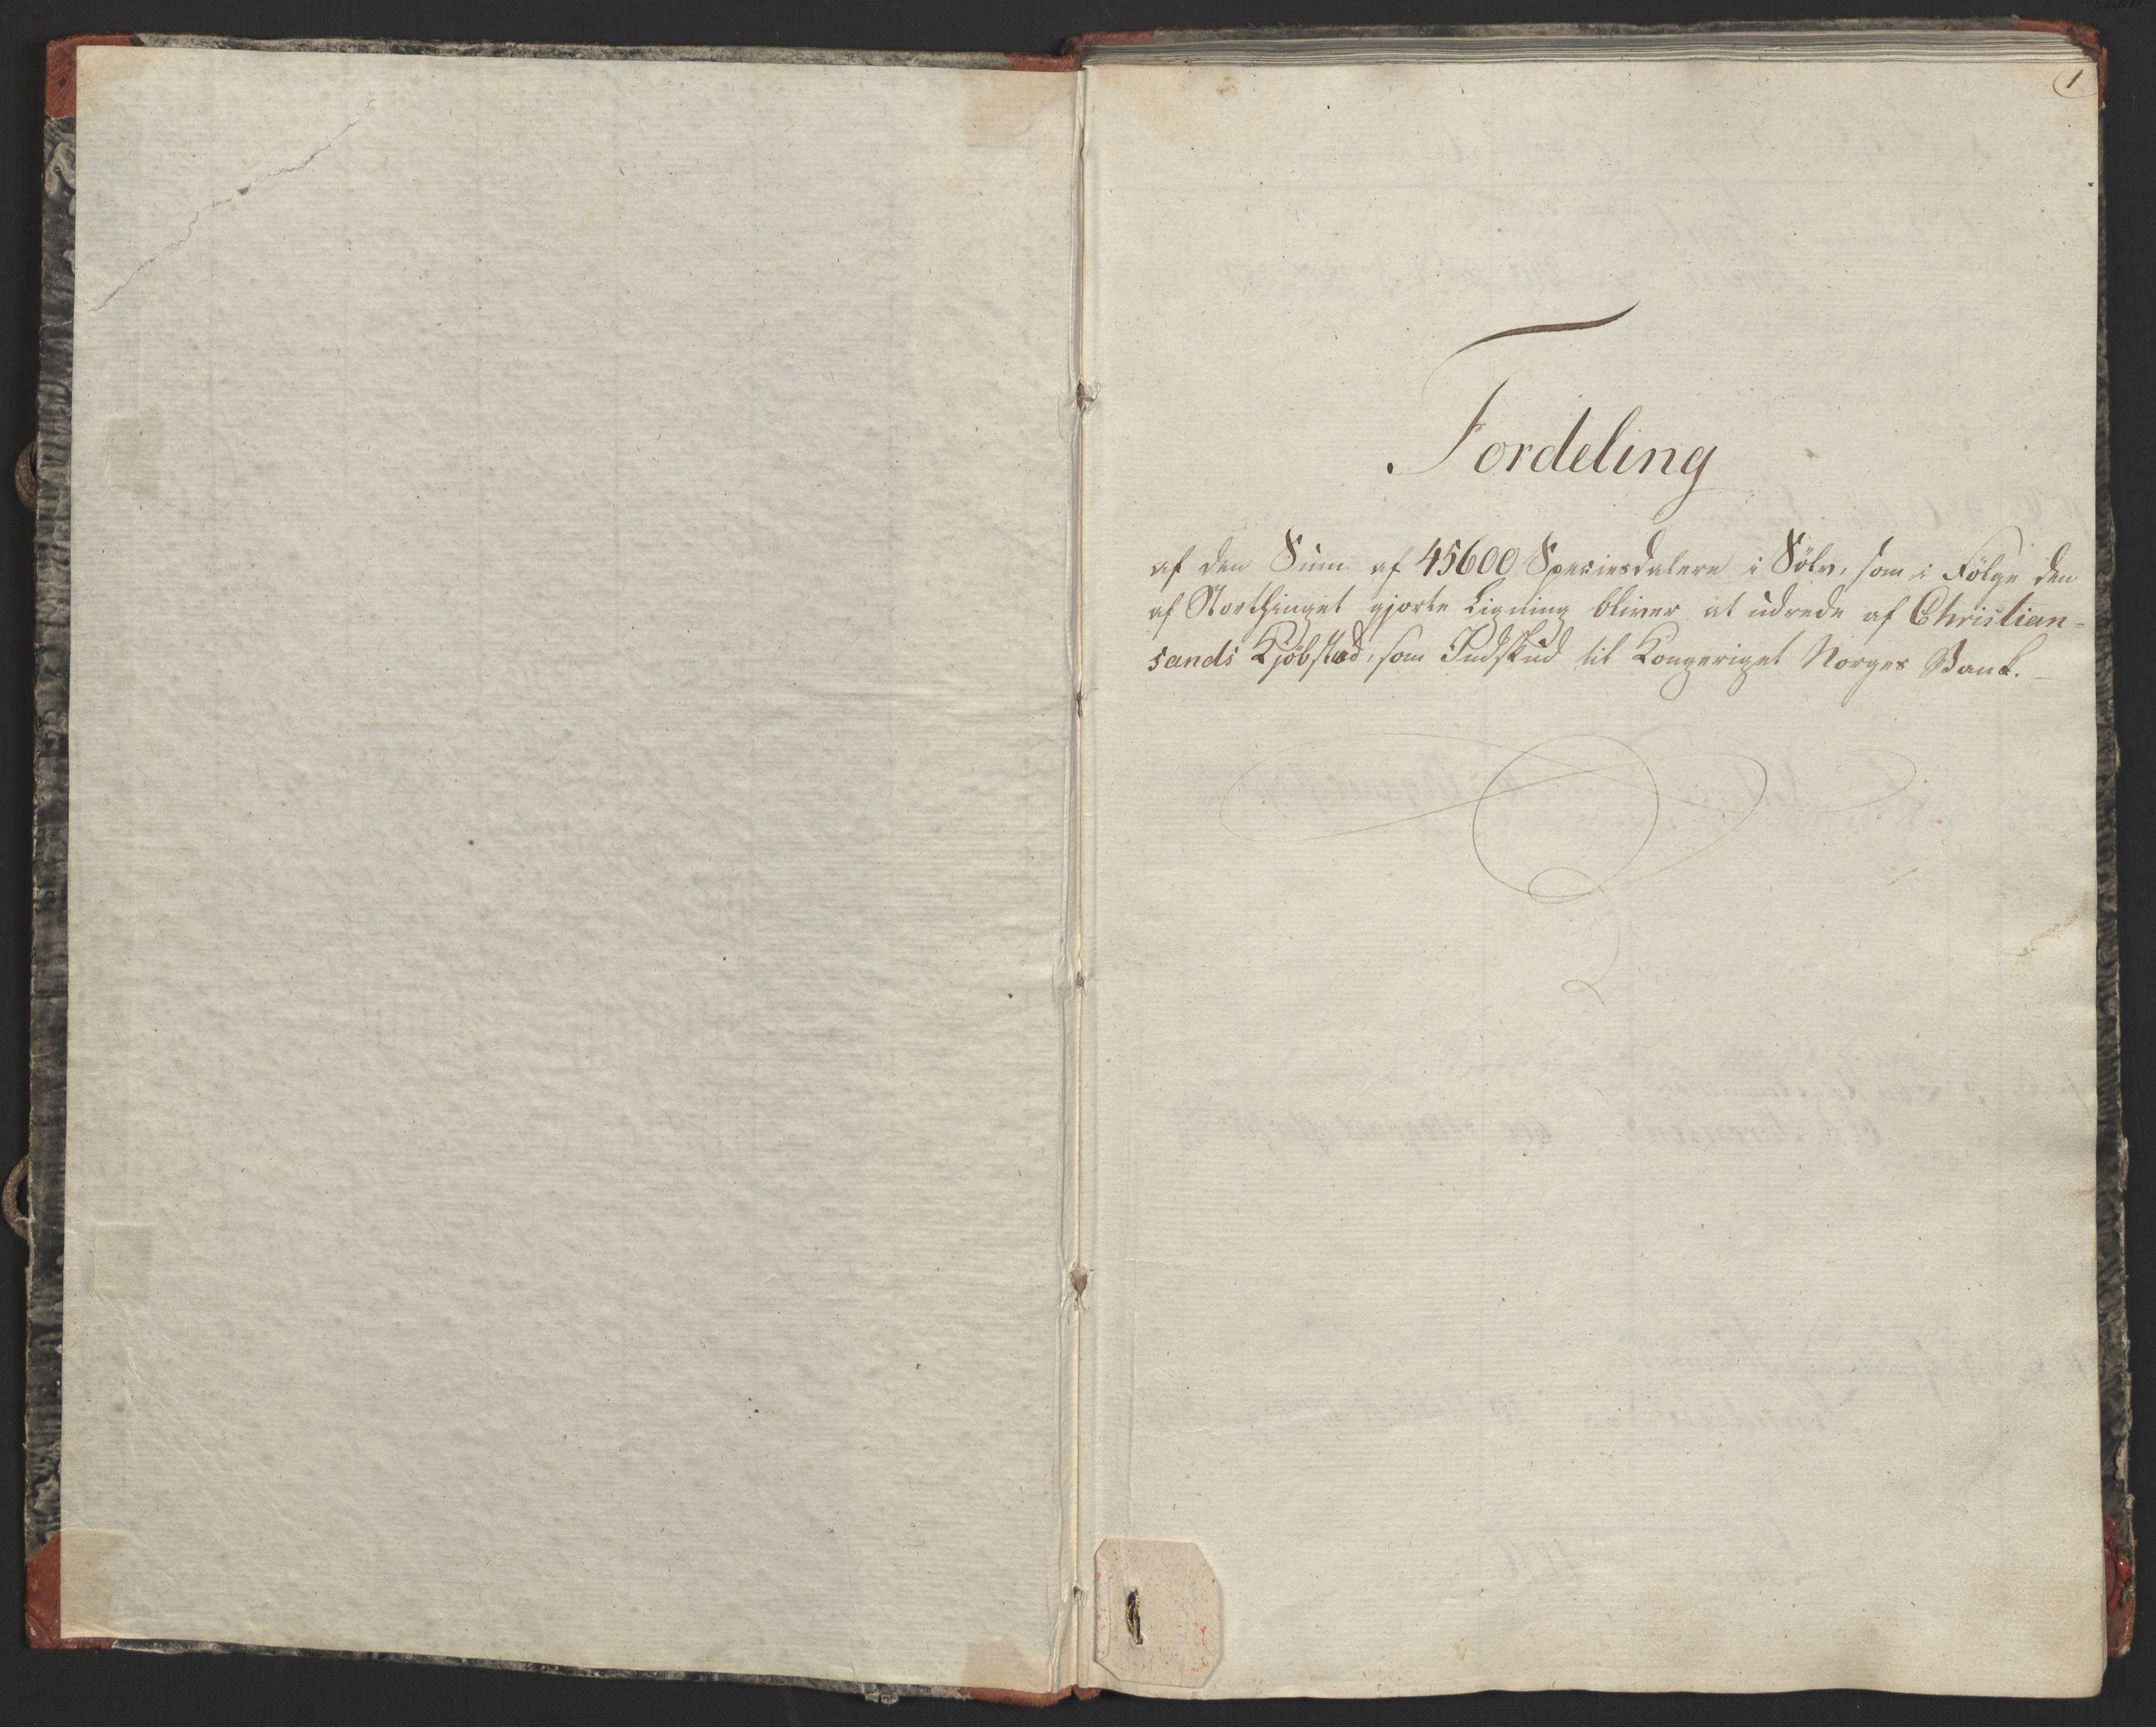 1
Fordeling
af den Sum af 45600 Speciesdalere i Sölv, som i Fölge den
af Storthinget gjorte Ligning bliver at udrede af Christian-
sands Kjöbstad, som Indskud til Kongeriget Norges Bank.